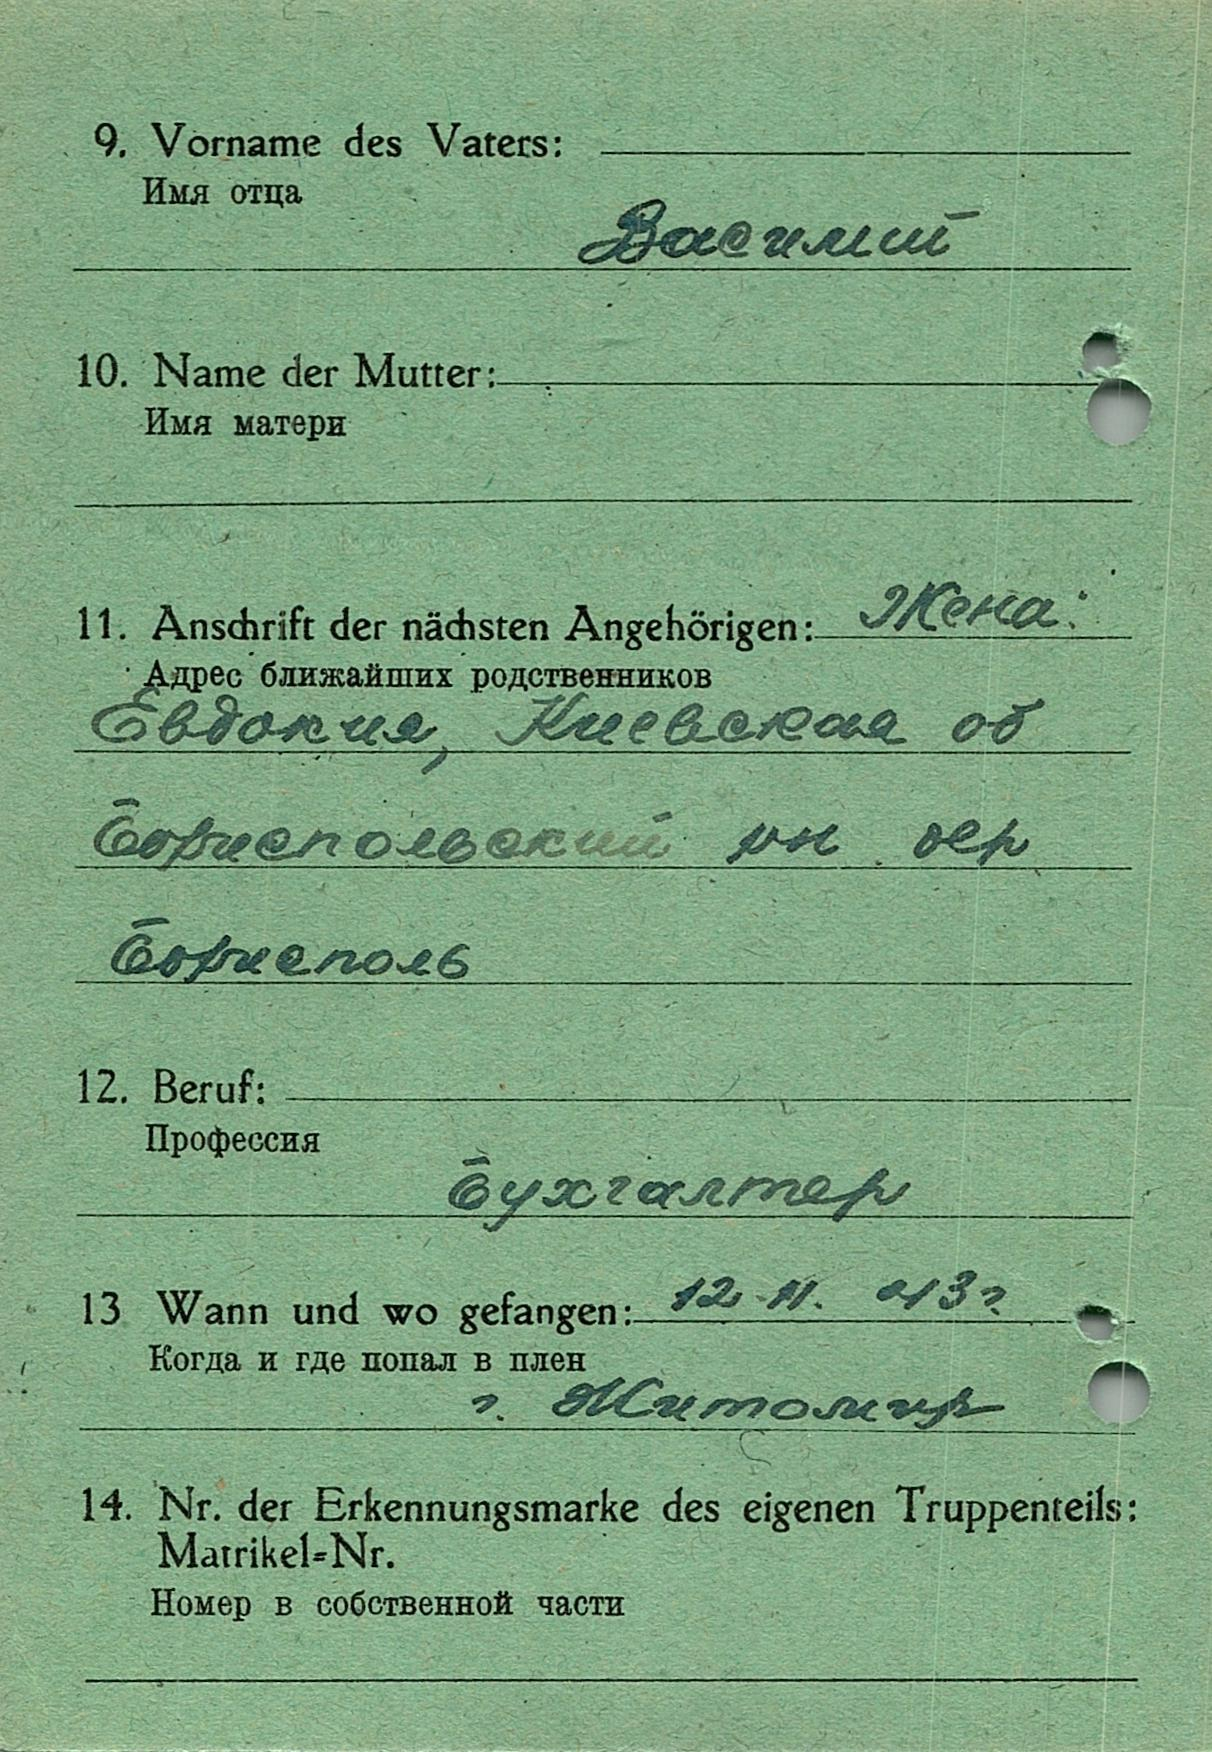 9. Vorname des Vaters:
Имя отца
Василий
10. Name der Mutter:
Имя матери
11. Anschrift der nächsten Angehörigen: Жена:
Адрес ближайших родственников
Евдокия, Киевская об
Бориспольский рн дер
Борисполь
12. Beruf:
Профессия
Бухгалтер
13 Wann und wo gefangen: 12.11. 43 г.
Когда и где попал в плен
г. Житомир
14. Nr. der Erkennungsmarke des eigenen Truppenteils:
Matrikel=Nr.
Номер в собственной части